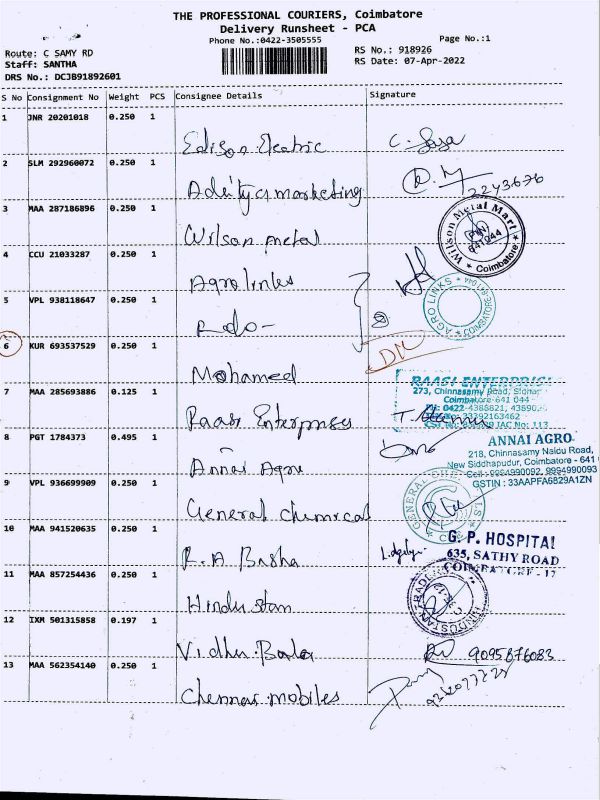 THE PROFESSIONAL COURIERS, Coimbatore
Delivery Runsheet - PCA
Phone No.:0422-3505555
Page No.:1
Route: C SAMY RD
RS No.: 918926
Staff: SANTHA
RS Date: 07-Apr-2022
DRS No.: DCJB91892601
S No Consignment No Weight PCS Consignee Details Signature
1 JNR 20201018 0.250 1
Edison Electric
2 SLM 292960072 0.250 1
Aditya marketing
2243676
3 MAA 287186896 0.250 1
Wilson metal
Wilson Metal Mart
641044
Coimbatore
4 CCU 21033287 0.250 1
Agro links
AGRO LINKS
COIMBATORE
5 VPL 938118647 0.250 1
- do -
6 KUR 693537529 0.250 1
DM
Mohamed
RAASI ENTERPRISES
273, Chinnasamy Road,
Coimbatore-641 044
7 MAA 285693886 0.125 1
Raasi Enterprises
8 PGT 1784373 0.495 1
Annai Agro
ANNAI AGRO
218, Chinnasamy Naidu Road,
New Siddhapudur, Coimbatore - 641
Cell : 9994990092, 9994990093
GSTIN : 33AAPFA6829A1ZN
9 VPL 936699909 0.250 1
General chemical
10 MAA 941520635 0.250 1
R.A Basha
G. P. HOSPITAL
635, SATHY ROAD
COIMBATORE - 12
11 MAA 857254436 0.250 1
Hindustan
HINDUSTAN TRADERS
12 IXM 501315858 0.197 1
Vidhu Bala
9095876083
13 MAA 562354140 0.250 1
Chennai mobiles